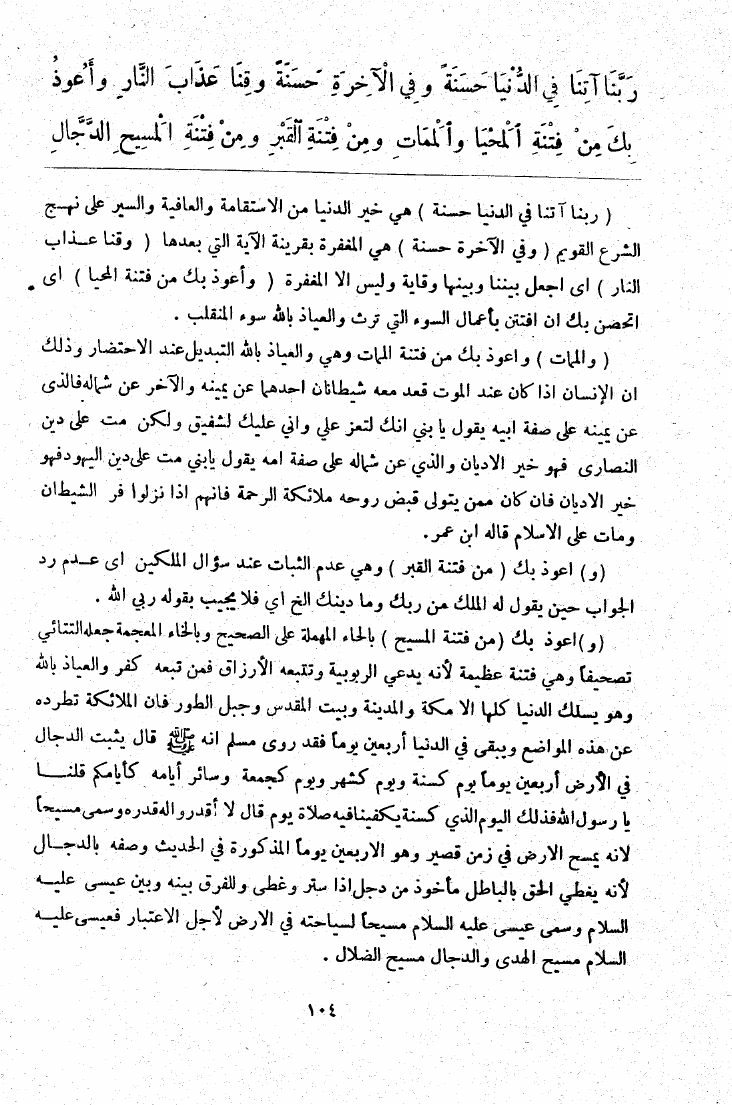 رَبَّنَا آتِنَا فِي الدُّنْيَا حَسَنَةً وفِي الْآخِرَةِ حَسَنَةً وقِنَا عَذَابَ النَّارِ وأَعُوذُ
بِكَ مِنْ فِتْنَةِ اَلْمَحْيَا واَلْمَمَاتِ ومِنْ فِتْنَةِ اَلْقَبْرِ ومِنْ فِتْنَةِ الْمَسِيحِ الدَّجَّالِ
( ربنا آتنا في الدنيا حسنة ) هي خير الدنيا من الاستقامة والعافية والسير على نهج
الشرع القويم ( وفي الآخرة حسنة ) هي المغفرة بقرينة الآية التي بعدها ( وقنا عذاب
النار ) اى اجعل بيننا وبينها وقاية وليس الا المغفرة ( وأعوذ بك من فتنة المحيا ) اى
اتحضن بك ان افتتن بأعمال السوء التي ترث والعياذ بالله سوء المنقلب .
( والممات ) واعوذ بك من فتنة الممات وهي والعياذ بالله التبديل عند الاحتضار وذلك
ان الإنسان اذا كان عند الموت قعد معه شيطانان احدهما عن يمينه والآخر عن شماله فالذى
عن يمينه على صفة ابيه يقول يا بني انك لتعز علي واني عليك لشفيق ولكن مت على دين
النصارى فهو خير الاديان والذي عن شماله على صفة امه يقول يابني مت على دين اليهود فهو
خير الاديان فان كان ممن يتولى قبض روحه ملائكة الرحمة فانهم اذا نزلوا فر الشيطان
ومات على الاسلام قاله ابن عمر.
(و) اعوذ بك ( من فتنة القبر ) وهي عدم الثبات عند سؤال الملكين اى عدم رد
الجواب حين يقول له الملك من ربك وما دينك الخ اي فلا يجيب بقوله ربي الله .
(و) اعوذ بك (من فتنة المسيح ) بالحاء المهملة على الصحيح وبالخاء المعجمة جعله التتائي
تصحيفاً وهي فتنة عظيمة لأنه يدعي الربوبية وتتبعه الأرزاق فمن تبعه كفر والعياذ بالله
وهو يسلك الدنيا كلها الا مكة والمدينة وبيت المقدس وجبل الطور فان الملائكة تطرده
عن هذه المواضع ويبقى في الدنيا أربعين يوماً فقد روى مسلم انه ﷺ قال يثبت الدجال
في الأرض أربعين يوماً يوم كسنة ويوم كشهر ويوم كجمعة وسائر أيامه كأيامكم قلنا
يا رسول الله فذلك اليوم الذي كسنة يكفينا فيه صلاة يوم قال لا أقدروا له قدره وسمى مسيحاً
لانه يمسح الارض في زمن قصير وهو الاربعين يوماً المذكورة في الحديث وصفه بالدجال
لأنه يغطي الحق بالباطل مأخوذ من دجل اذا ستر وغطى وللفرق بينه وبين عيسى عليه
السلام وسمى عيسى عليه السلام مسيحاً لسياحته في الارض لأجل الاعتبار فعيسى عليه
السلام مسيح الهدى والدجال مسيح الضلال .
١٠٤